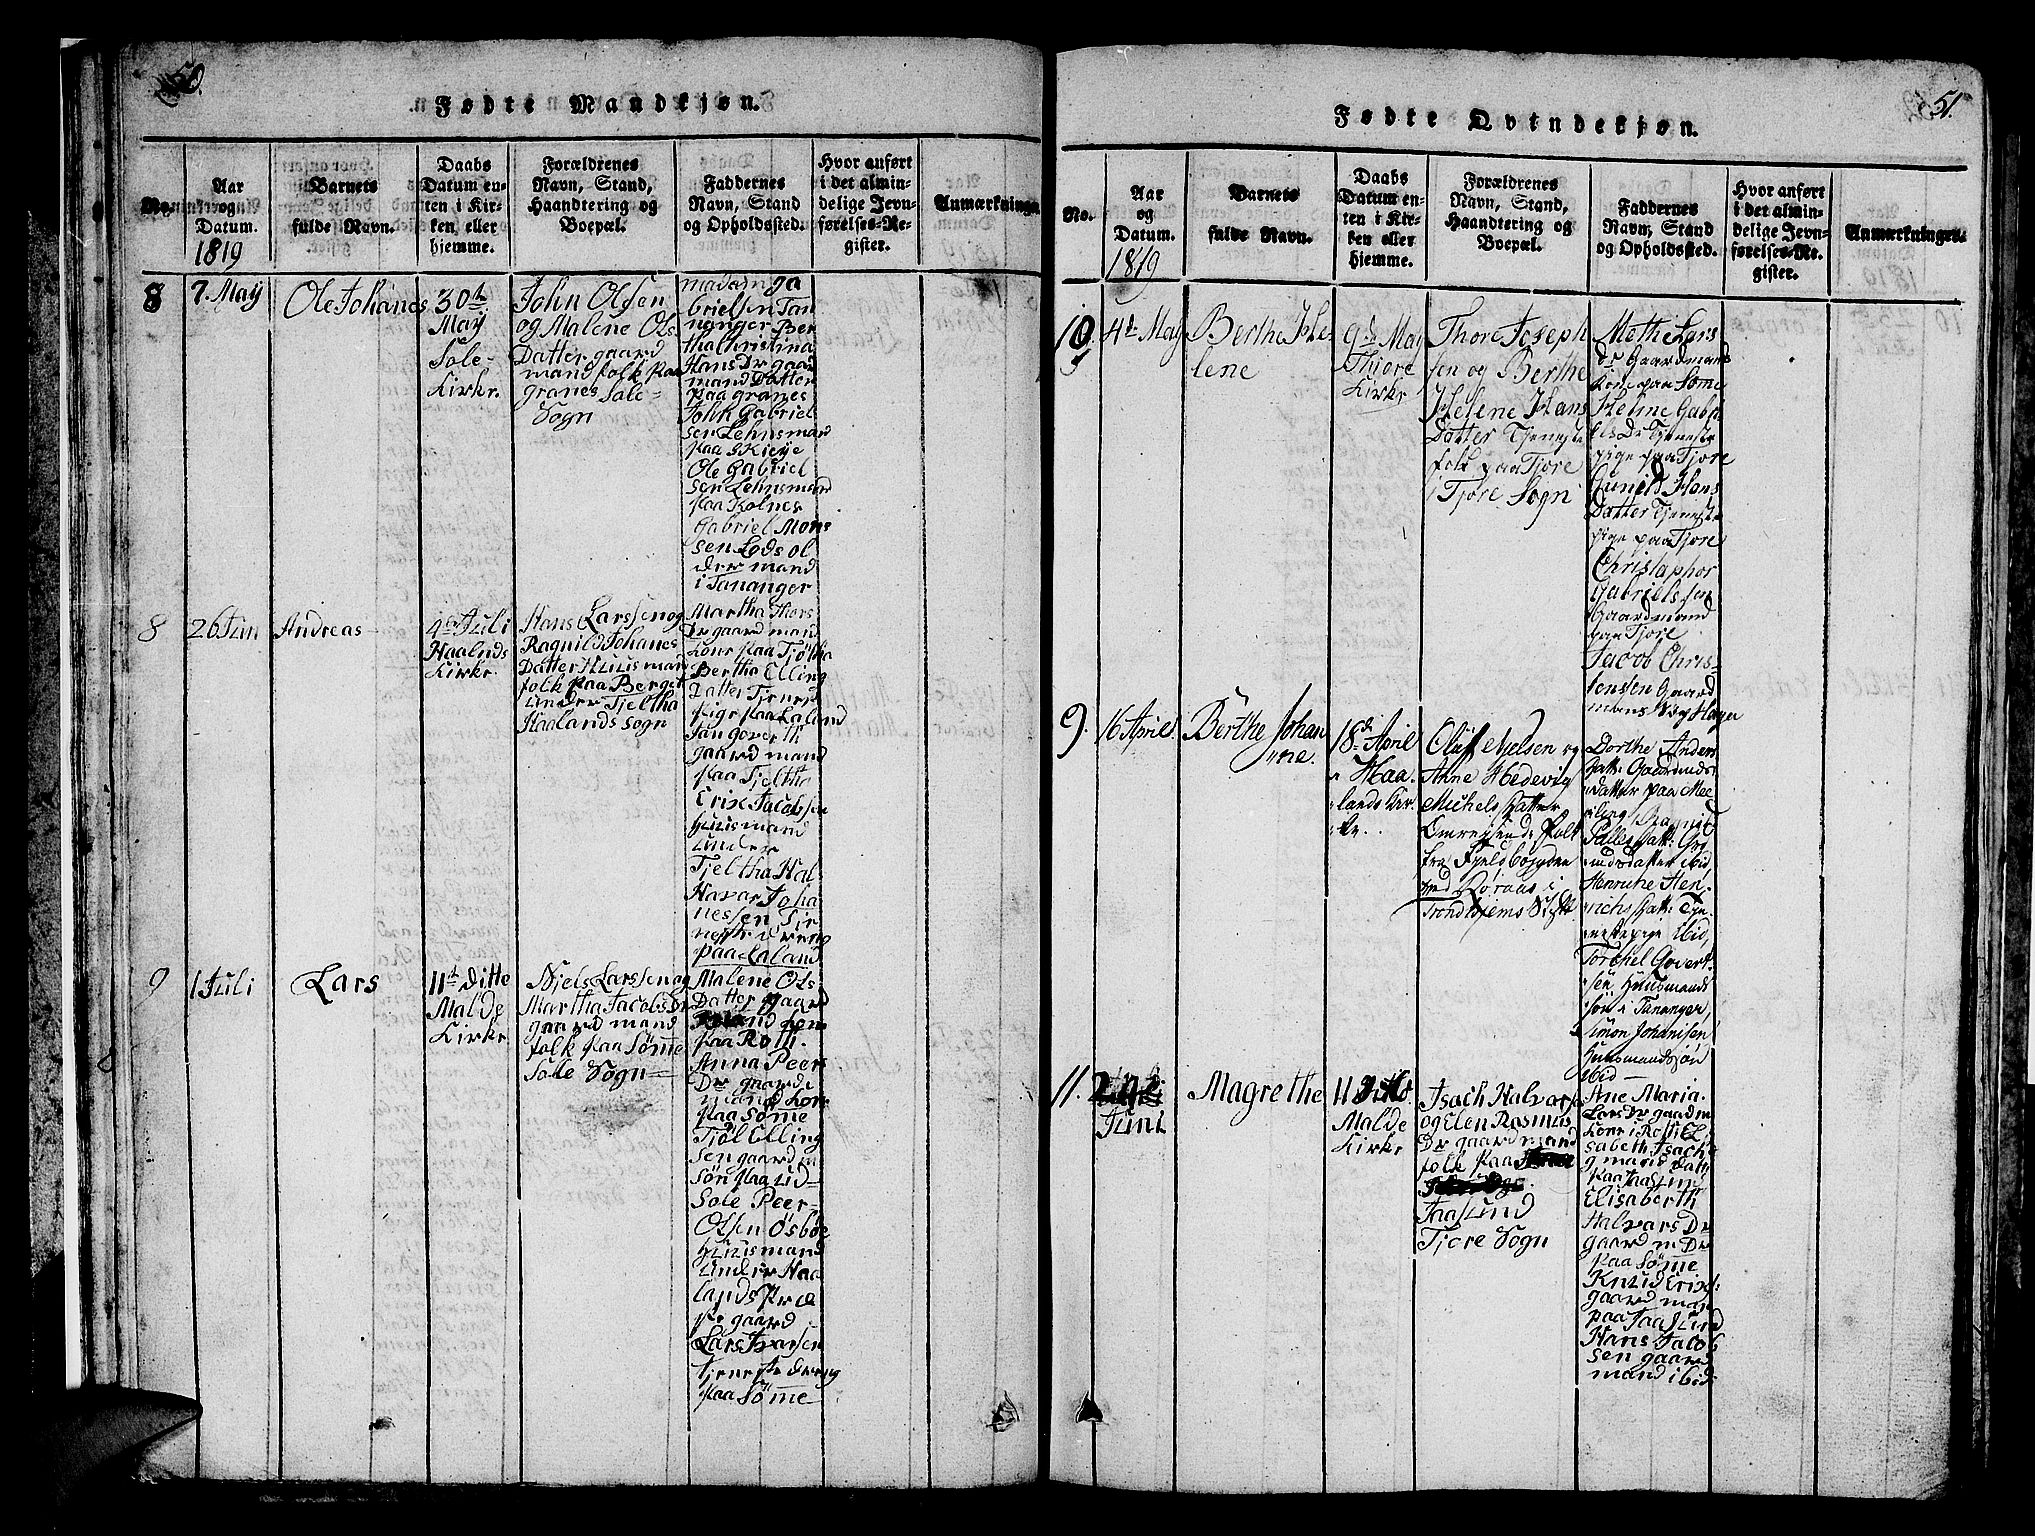 50.
Fødte Mandkjøn.
No.
Aar
og
Datum.
1819
Barnets
fulde Navn.
Daabs
Datum en-
ten i Kir-
ken, eller
hjemme.
Forældrenes
Navn, Stand,
Haandtering og
Boepæl.
Faddernes
Navn, Stand
og Opholdssted.
Hvor anført
i det almin-
delige Jevn-
førelses-Re-
gister.
Anmærkninge
8
7. Maÿ
Ole Johanes
30te
Maÿ
Sole-
Kirke.
John Olsen
og Malene Ols
Datter gaard
mand folk paa
granes Sole-
Sogn
madam ga
brielsen Tan
nanger Ber
tha Christina
Hans Dr gaar
mand Datter
paa granes
John Gabriel
sen Lehnsmand
paa Skieÿe
Ole Gabriel
sen Lehnsmand
paa Kolnes
Gabriel Mons
sen Lods ol
dermand
i Tananger
8
26 Jun
Andreas
4de Juli
Haalnds
Kirke.
Hans Larssen og
Ragnild Johanes
Datter Huusmand
folk paa Berget
under Tjeltha
Haalands Sogn
Martha Thors
Dr gaard mand
kone paa Tjøtha
Bertha Elling
Datter Tienest
Pige paa Laland
Jan goverth
gaard mand
paa Tjeltha
Erix Jacobsen
Huusmand
under
Tjeltha Hal
Havar Joha
nessen Tie
neste dreng
paa Laland
9
1 Juli
Lars
11te ditte
Malde
Kirke
Niels Larssen og
Martha Jacobs Dr
gaard mand
folk paa Sømme
Sole Sogn
Malene Ols
Datter gaard
mand kone
paa Roth.
Anna Peers
Dr gaarde
mand kone
paa Sømme
Tjøl Elling
sen gaard m
Søn paa ud-
Sole Peer-
Olsen Øsbøe
Huusmand
under Haa
lands Præ
ste gaard
Lars Ivarsen
tjeneste dreng
paa Sømme
51.
Fødte Qvindekjøn.
No.
Aar
og
Datum.
1819
Barnets
fulde Navn.
Daabs
Datum en-
ten i Kir-
ken eller
hjemme.
Forældrenes
Navn, Stand,
Haandtering og
Boepæl.
Faddernes
Navn, Stand
og Opholdssted.
Hvor anført
i det almin-
delige Jevn-
førelses-Re-
gister.
Anmærkninger.
10.
4de May
Berthe He
lene
9de May
Thiore
Kirke
Thore Joseph
sen og Berthe
Helene Hans
Datter Tjeneste
folk paa Tjore
i Tjore Sogn
Methe Lars
Dr Gaardmand
Kone paa Sømme
Helene Gabri
els Dr Tjeneste
pige paa Tjore
Gunild Hans
Datter Tjeneste
pige paa Tjore
Christophor
Gabrielssen
Gaardmand
paa Tjore
Jacob Chris-
tensen Gaard
mand Hager
9.
16 April.
Berthe Johan
ne.
18de April
i Haa
lands Kir
ke.
Oluf Nelsen og
Ahne Hedevig
Michels Datter
Omreysende Folk
fra Fjeldbøygden
ved Røraas i
Trondhjems Stift
Dorthe Anden
Datt: Gaardmands
datter paa Mee
ling, Ragnild
Datt: Gaard
mands datter ibid
Henriche Hen
richs Datt: Tje
nestepige ibid,
Torchel Govert
sen Huusmands
søn i Tananger,
Simon Johansen
Huusmandssøn
ibid
11.
Juni
Magrethe
11 Ditto.
Malde
Kirke
Isach Halvarsen
og Elen Rasmus
Dr gaard mand
folk paa
Jaasund
Tjore Sogn
Ane Maria.
Lars Dr gaard m
kone i Rossi El
sabeth Isachs
g mand datt
paa Jaasund
Elisaberth
Halvars Dr
gaard m Dr
paa Sømme
Knud Erix:
gaard man
paa Jaasund
Hans Jacob
sen gaard
mand ibid